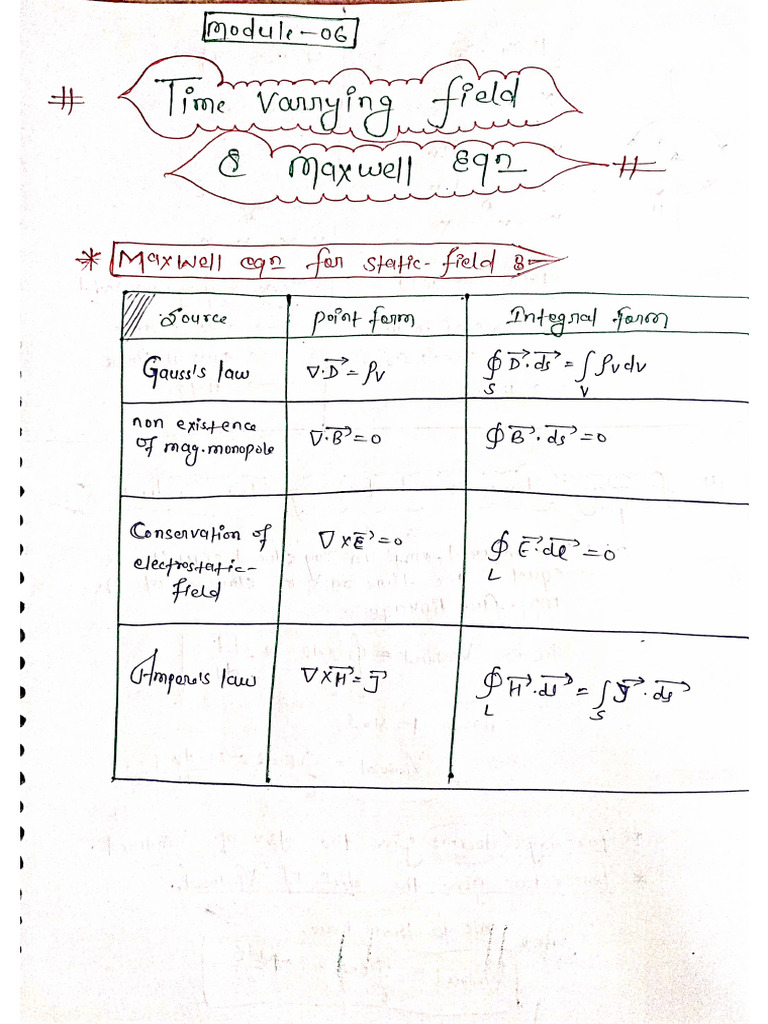 Module-06
# Time Varrying field
& Maxwell Eqn #
* Maxwell eqn for static-field :-
Source Point form Integral form
Gauss's law ∇·D⃗ = ρv ∮S D⃗·ds⃗ = ∫V ρv dv
non existence
of mag. monopole ∇·B⃗ = 0 ∮ B⃗·ds⃗ = 0
Conservation of
electrostatic-
field ∇×E⃗ = 0 ∮L E⃗·dl⃗ = 0
Ampere's law ∇×H⃗ = J⃗ ∮L H⃗·dl⃗ = ∫S J⃗·ds⃗